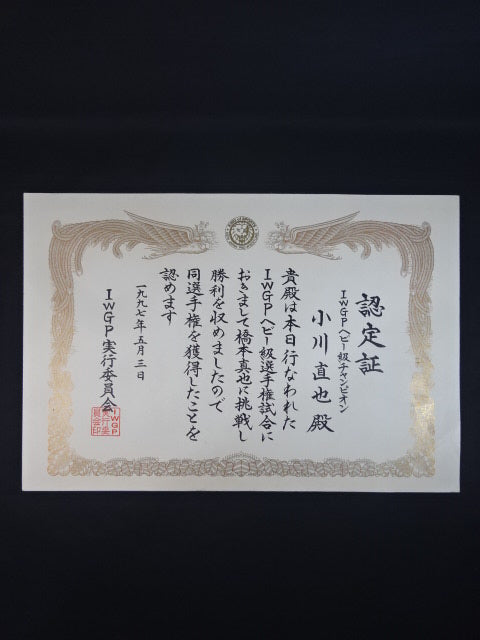 認定証
IWGPヘビー級チャンピオン
小川直也殿
貴殿は本日行なわれた
IWGPヘビー級選手権試合に
おきまして橋本真也に挑戦し
勝利を収めましたので
同選手権を獲得したことを
認めます
一九九七年五月三日
IWGP実行委員会
IWGP
実行委
員会印